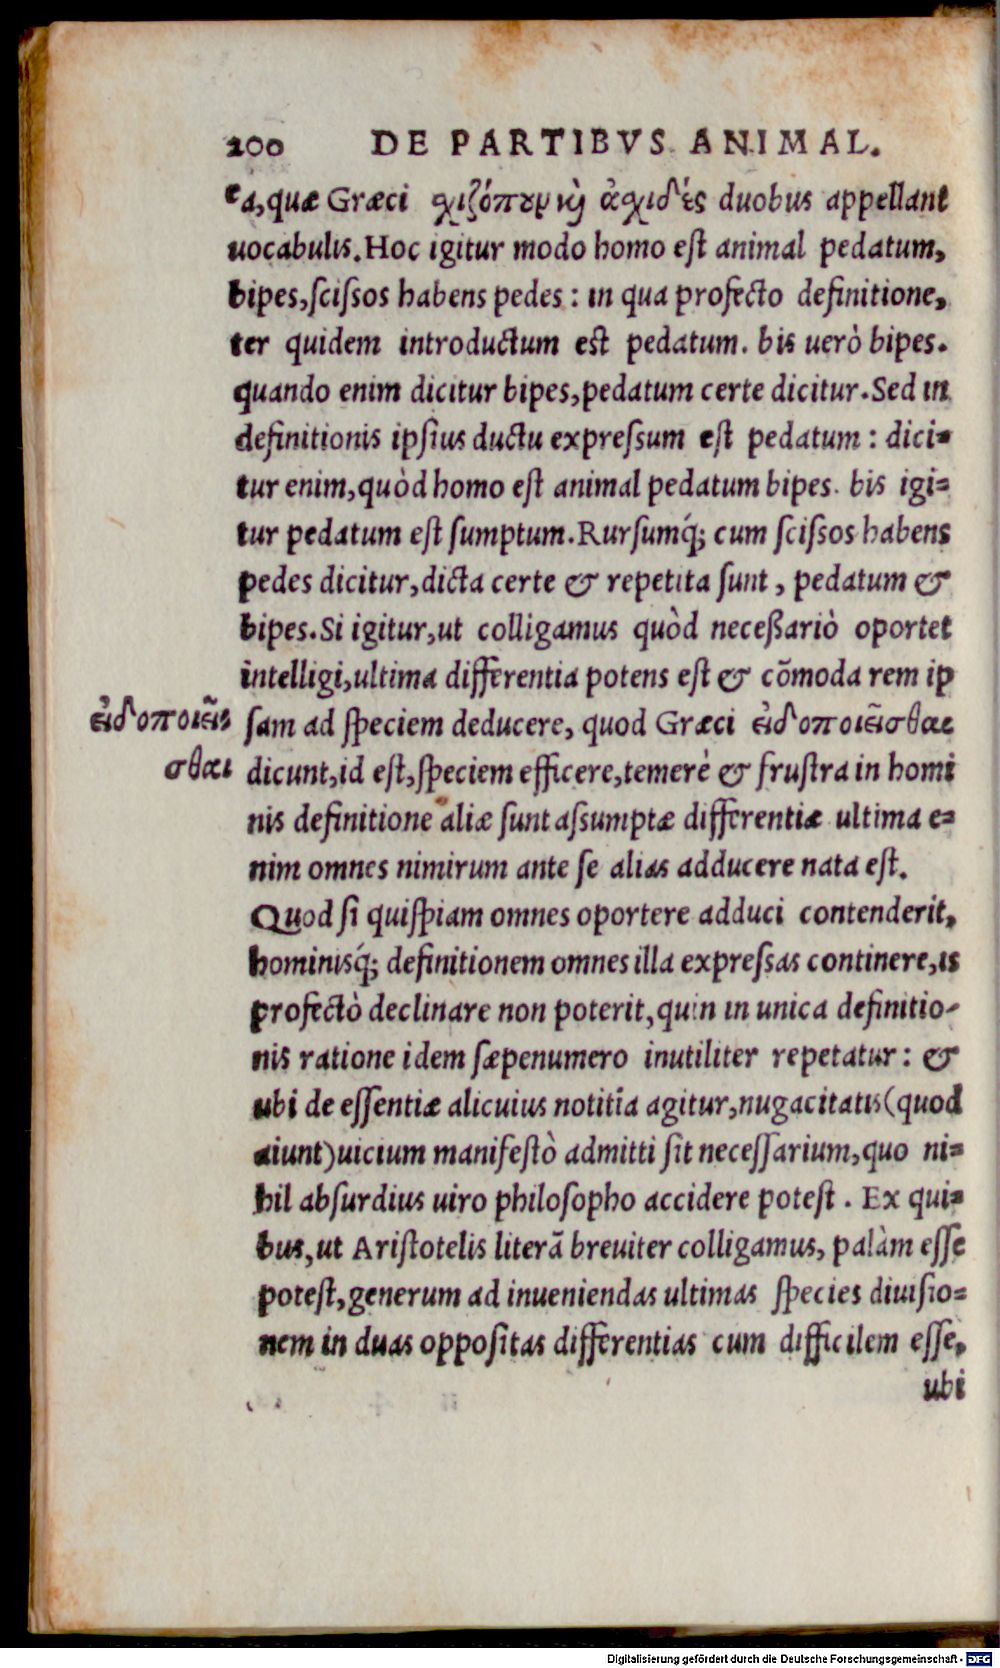 200 DE PARTIBVS ANIMAL.
ea, quæ Græci σχιζόπουν καὶ ἀσχιδὲς duobus appellant
uocabulis. Hoc igitur modo homo est animal pedatum,
bipes, scissos habens pedes : in qua profecto definitione,
ter quidem introductum est pedatum. bis uerò bipes.
quando enim dicitur bipes, pedatum certe dicitur. Sed in
definitionis ipsius ductu expressum est pedatum : dici=
tur enim, quòd homo est animal pedatum bipes. bis igi=
tur pedatum est sumptum. Rursumq́; cum scissos habens
pedes dicitur, dicta certe & repetita sunt, pedatum &
bipes. Si igitur, ut colligamus quòd necessariò oportet
intelligi, ultima differentia potens est & cōmoda rem ip
sam ad speciem deducere, quod Græci εἰδοποιεῖσθαι
εἰδοποιεῖσ
σθαι
dicunt, id est, speciem efficere, temerè & frustra in homi
nis definitione aliæ sunt assumptæ differentiæ ultima e=
nim omnes nimirum ante se alias adducere nata est.
Quod si quispiam omnes oportere adduci contenderit,
hominisq́; definitionem omnes illa expressas continere, is
profectò declinare non poterit, quin in unica definitio-
nis ratione idem sæpenumero inutiliter repetatur : &
ubi de essentiæ alicuius notitia agitur, nugacitatis (quod
aiunt) uicium manifestò admitti sit necessarium, quo ni=
hil absurdius uiro philosopho accidere potest. Ex qui=
bus, ut Aristotelis literā breuiter colligamus, palàm esse
potest, generum ad inueniendas ultimas species diuisio=
nem in duas oppositas differentias cum difficilem esse,
ubi
Digitalisierung gefördert durch die Deutsche Forschungsgemeinschaft - DFG